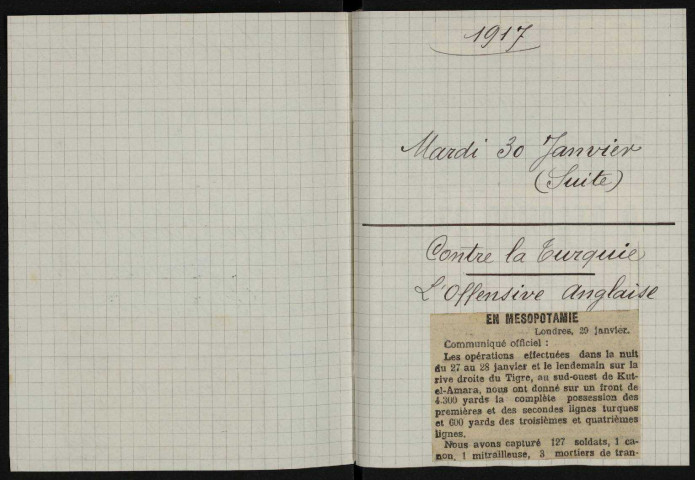 1917
Mardi 30 Janvier
(Suite)
Contre la Turquie
L'Offensive Anglaise
EN MESOPOTAMIE
Londres, 29 janvier.
Communiqué officiel :
Les opérations effectuées dans la nuit
du 27 au 28 janvier et le lendemain sur la
rive droite du Tigre, au sud-ouest de Kut-
el-Amara, nous ont donné sur un front de
4.300 yards la complète possession des
premières et des secondes lignes turques
et 600 yards des troisièmes et quatrièmes
lignes.
Nous avons capturé 127 soldats, 1 ca-
non, 1 mitrailleuse, 3 mortiers de tran-